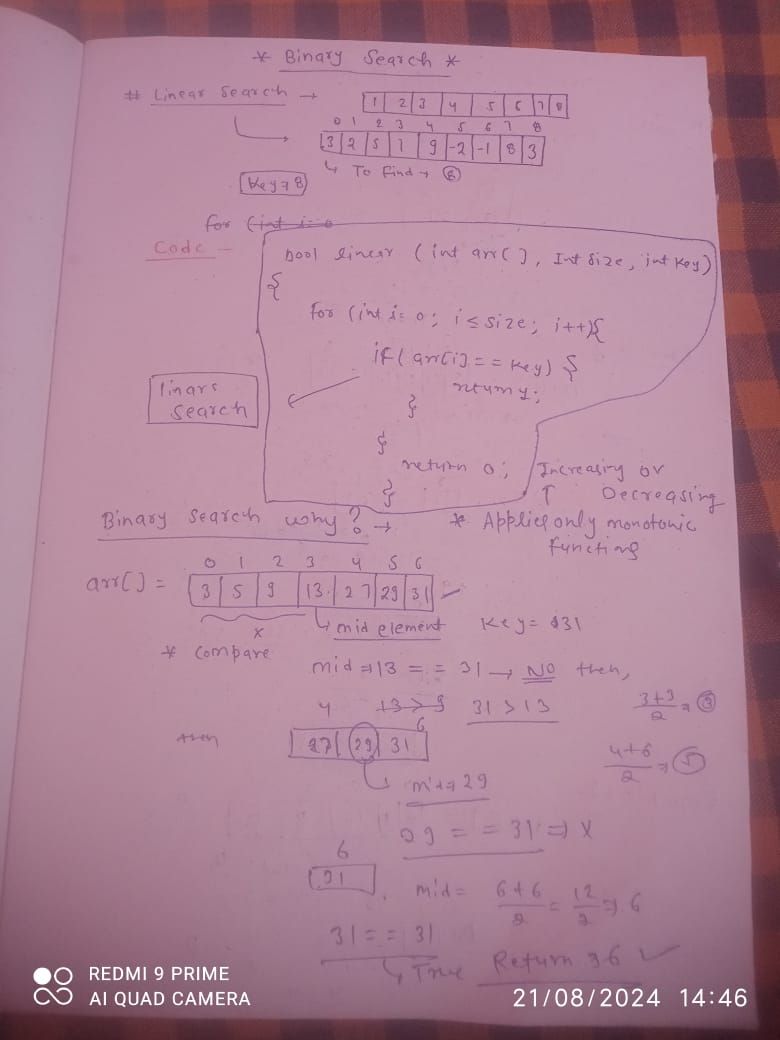 * Binary Search *
# Linear Search →
1 2 3 4 5 6 7 8
0 1 2 3 4 5 6 7 8
3 2 5 7 9 -2 -1 8 3
↳ To find → 8
Key → 8
for (int i=0
Code -
bool linear (int arr[], Int Size, int Key)
{
for (int i=0; i≤size; i++){
if(arr[i]==key) {
return 1;
}
linars
Search
}
return 0;
}
Increasing or
↑ Decreasing
Binary Search why? →
* Applied only monotonic
functions
0 1 2 3 4 5 6
arr[] = 3 5 9 13 27 29 31
x
↳ mid element Key = 31
* Compare
mid ⇒ 13 == 31 → NO then,
4 13 > 9 31 > 13
3+3/2 = 3
6
then 27 29 31
4+6/2 ⇒ 5
mid → 29
29 == 31 ⇒ X
6
31
mid = 6+6/2 = 12/2 ⇒ 6
31 == 31
↳ True Return 6 ✓
REDMI 9 PRIME
AI QUAD CAMERA
21/08/2024 14:46